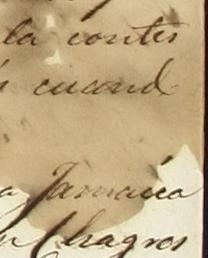 la contes
cuand
a Jamaica
n Chagres